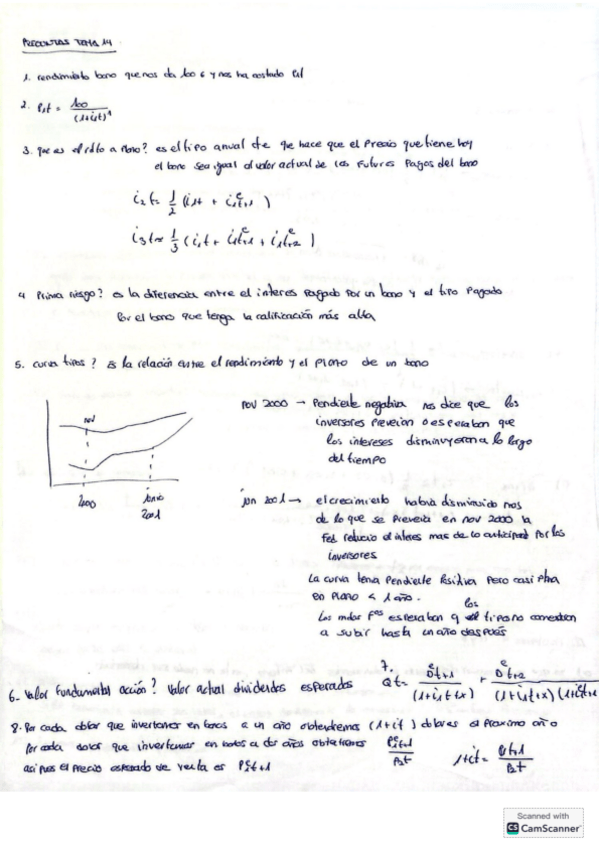 PREGUNTAS TEMA 14
1. rendimiento bono que nos da 100 € y nos ha costado
2. P1t = 100 / (1+i1t)^1
3. que es el a plazo? es el tipo anual cte que hace que el precio que tiene hoy
el bono sea igual al valor actual de los futuros pagos del bono
i2t = 1/2 (i1t + i1t+1^e)
i3t ≈ 1/3 (i1t + i1t+1^e + i1t+2^e)
4 Prima riesgo? es la diferencia entre el interes pagado por un bono y el tipo pagado
por el bono que tenga la calificación más alta
5. curva tipos? Es la relación entre el rendimiento y el plazo de un bono
nov
2000
junio
2001
nov 2000 → Pendiente negativa nos dice que los
inversores preveían o esperaban que
los intereses disminuyeran a lo largo
del tiempo
jun 2001 → el crecimiento había disminuido mas
de lo que se preveía en nov 2000 la
Fed redució el interes mas de lo anticipado por los
inversores
La curva tenía pendiente positiva pero casi plana
en plazo < 1 año.
Los esperaban q los tipos no comenzaban
a subir hasta un año después
6. Valor fundamental acción? Valor actual dividendos esperados
7. Qt = D^e t+1 / (1+i1t+x) + D^e t+2 / (1+i1t+x)(1+i1t+
8. Por cada dolar que invertamos en bonos a un año obtendremos (1+i1t) dolares el próximo año
Por cada dolar que invertamos en bonos a dos años obtendremos P^e1t+1 / P2t
asi pues el precio esperado de venta es P^e1t+1
1+i1t = P1t+1 / P2t
Scanned with
CS CamScanner